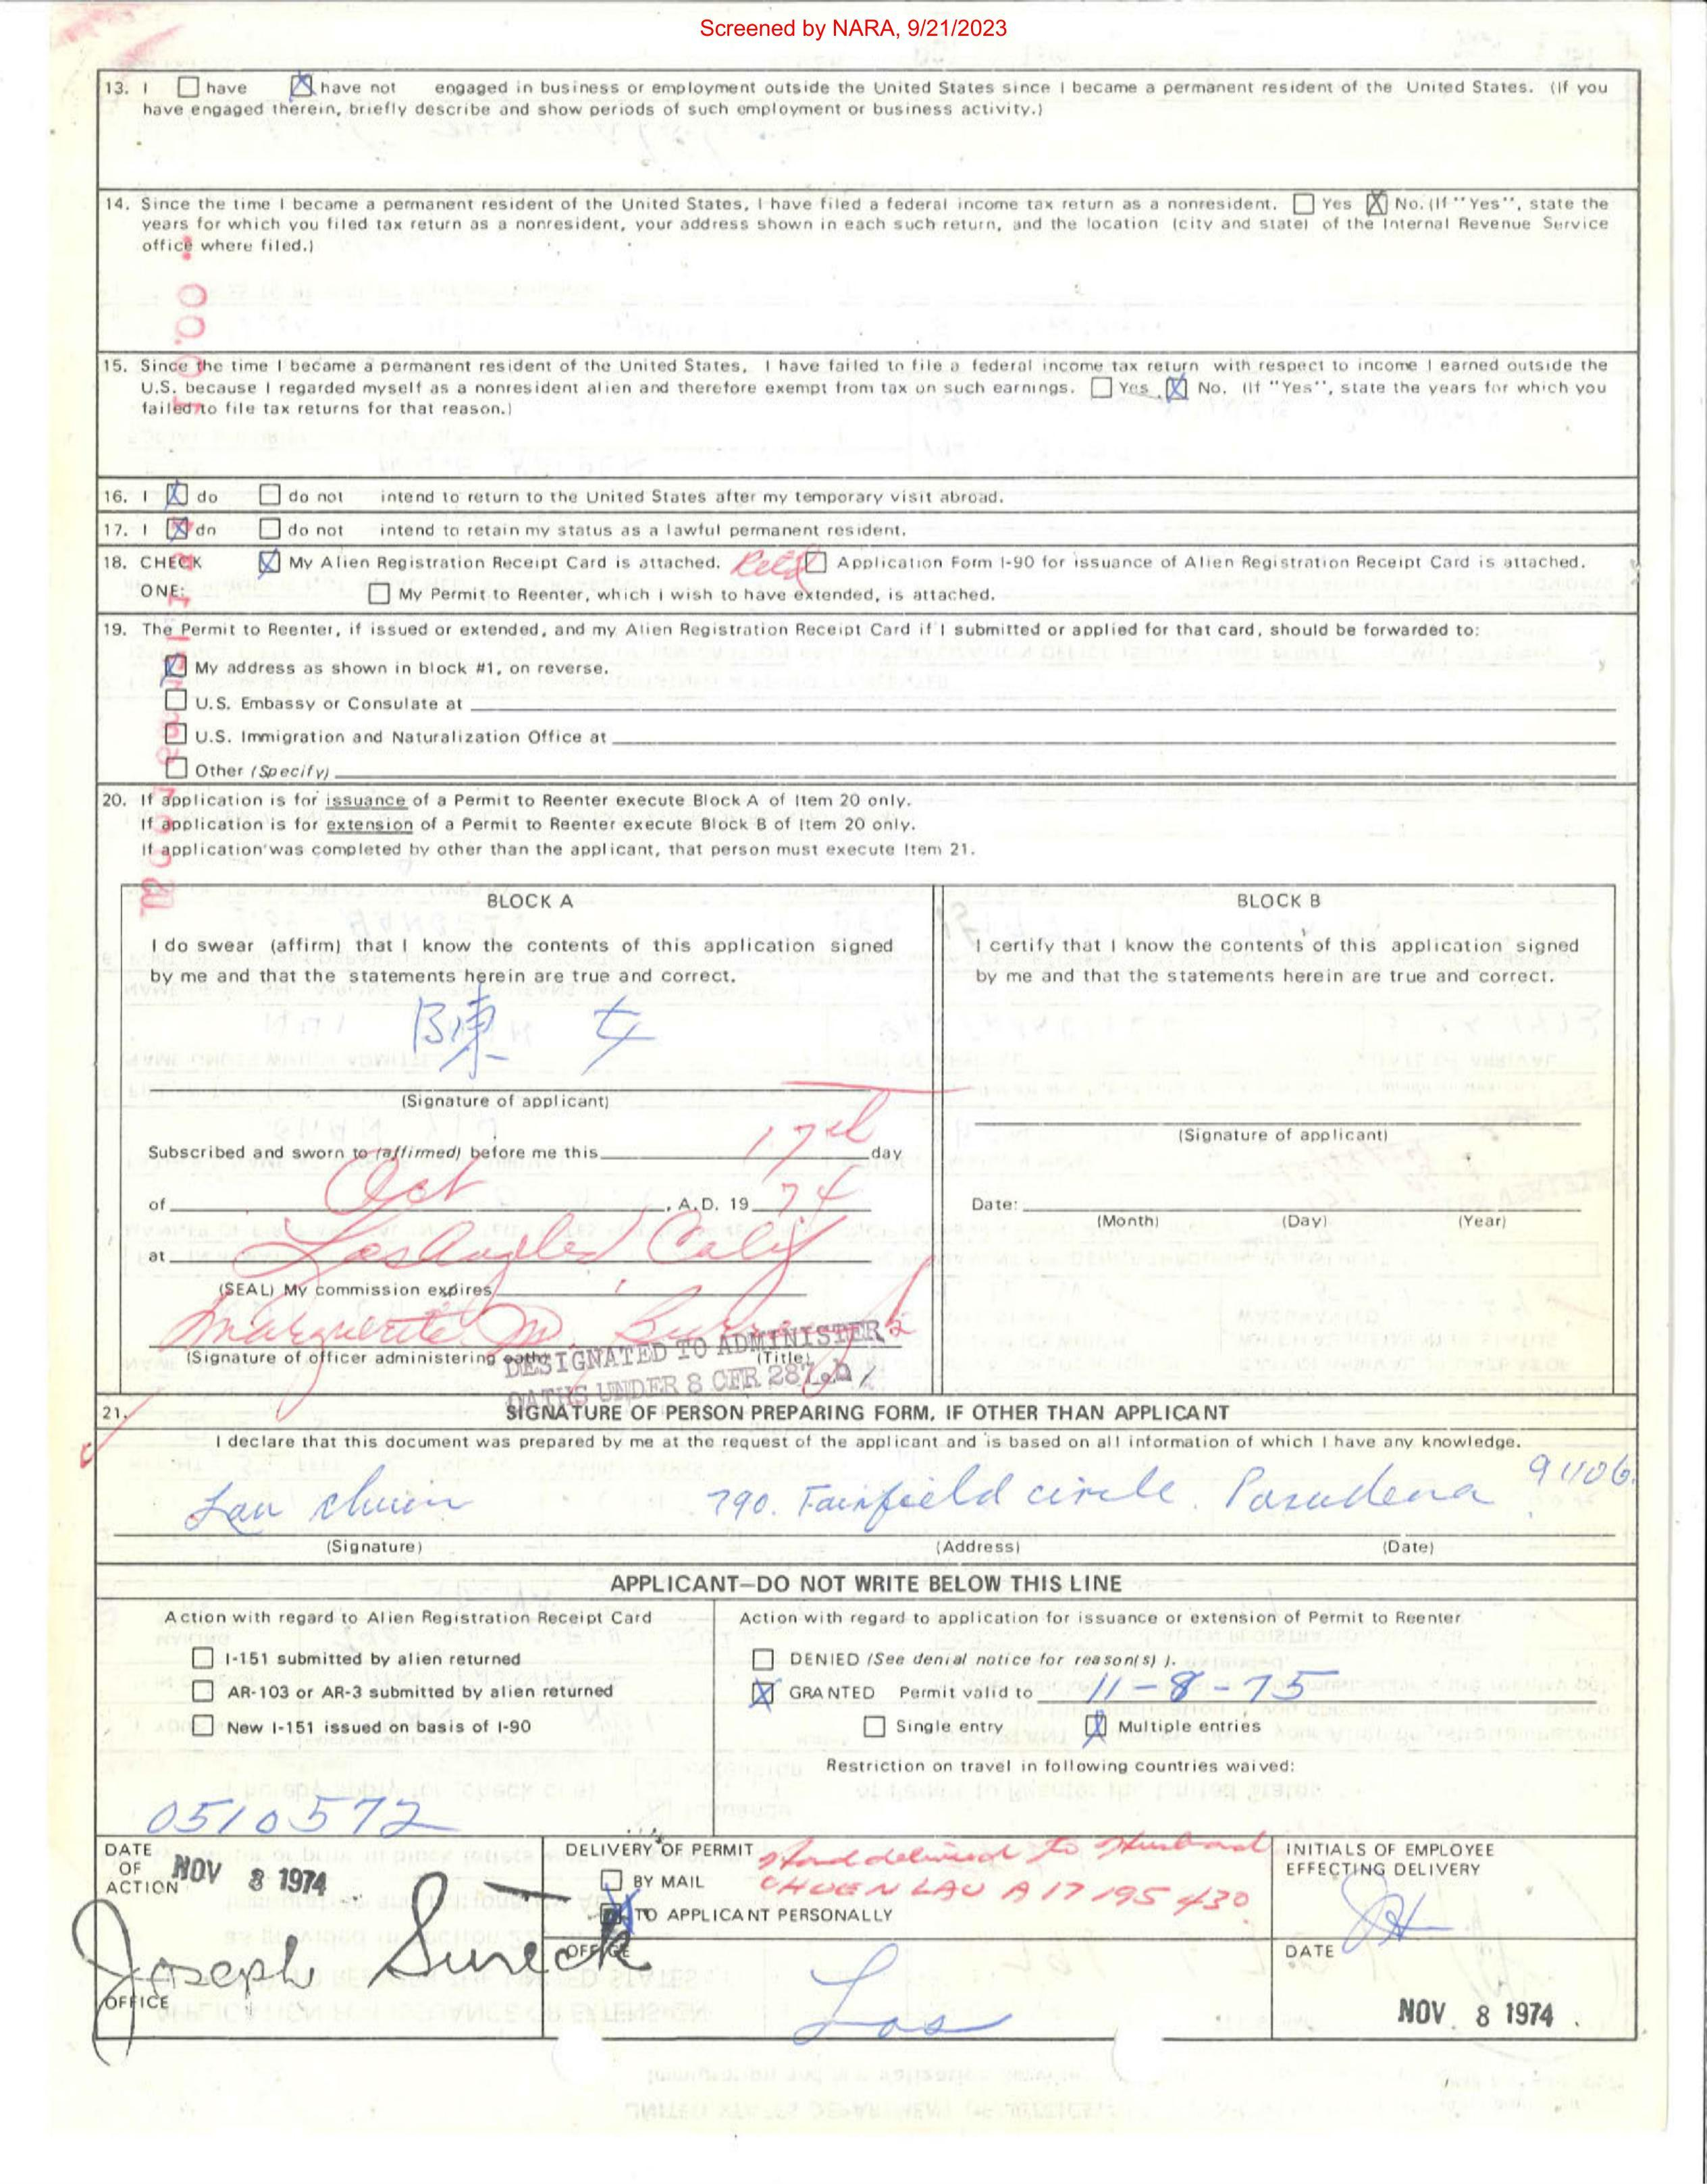 Screened by NARA, 9/21/2023
13. I ☐ have ☒ have not engaged in business or employment outside the United States since I became a permanent resident of the United States. (If you
have engaged therein, briefly describe and show periods of such employment or business activity.)
14. Since the time I became a permanent resident of the United States, I have filed a federal income tax return as a nonresident. ☐ Yes ☒ No. (If "Yes", state the
years for which you filed tax return as a nonresident, your address shown in each such return, and the location (city and state) of the Internal Revenue Service
office where filed.)
15. Since the time I became a permanent resident of the United States, I have failed to file a federal income tax return with respect to income I earned outside the
U.S. because I regarded myself as a nonresident alien and therefore exempt from tax on such earnings. ☐ Yes ☒ No. (If "Yes", state the years for which you
failed to file tax returns for that reason.)
16. I ☒ do ☐ do not intend to return to the United States after my temporary visit abroad.
17. I ☒ do ☐ do not intend to retain my status as a lawful permanent resident.
18. CHECK ☒ My Alien Registration Receipt Card is attached. ☐ Application Form I-90 for issuance of Alien Registration Receipt Card is attached.
ONE: ☐ My Permit to Reenter, which I wish to have extended, is attached.
19. The Permit to Reenter, if issued or extended, and my Alien Registration Receipt Card if I submitted or applied for that card, should be forwarded to:
☒ My address as shown in block #1, on reverse.
☐ U.S. Embassy or Consulate at
☐ U.S. Immigration and Naturalization Office at
☐ Other (Specify)
20. If application is for issuance of a Permit to Reenter execute Block A of Item 20 only.
If application is for extension of a Permit to Reenter execute Block B of Item 20 only.
If application was completed by other than the applicant, that person must execute Item 21.
BLOCK A
I do swear (affirm) that I know the contents of this application signed
by me and that the statements herein are true and correct.
陳 女
(Signature of applicant)
Subscribed and sworn to (affirmed) before me this 17th day
of Oct, A.D. 19 74
at Los Angeles Calif
(SEAL) My commission expires
Marguerite M.
(Signature of officer administering oath) (Title)
DESIGNATED TO ADMINISTER
OATHS UNDER 8 CFR 287
BLOCK B
I certify that I know the contents of this application signed
by me and that the statements herein are true and correct.
(Signature of applicant)
Date:
(Month) (Day) (Year)
21. SIGNATURE OF PERSON PREPARING FORM, IF OTHER THAN APPLICANT
I declare that this document was prepared by me at the request of the applicant and is based on all information of which I have any knowledge.
Lau Chuen 790. Fairfield circle. Pasadena 91106.
(Signature) (Address) (Date)
APPLICANT—DO NOT WRITE BELOW THIS LINE
Action with regard to Alien Registration Receipt Card
☐ I-151 submitted by alien returned
☐ AR-103 or AR-3 submitted by alien returned
☐ New I-151 issued on basis of I-90
0510572
Action with regard to application for issuance or extension of Permit to Reenter
☐ DENIED (See denial notice for reason(s) ).
☒ GRANTED Permit valid to 11-8-75
☐ Single entry ☒ Multiple entries
Restriction on travel in following countries waived:
DATE
OF
ACTION NOV 8 1974
Joseph Sureck
OFFICE
DELIVERY OF PERMIT Hand delivered to Husband
☐ BY MAIL CHUEN LAU A17 195 430
☒ TO APPLICANT PERSONALLY
OFFICE
Los
INITIALS OF EMPLOYEE
EFFECTING DELIVERY
DATE
NOV 8 1974